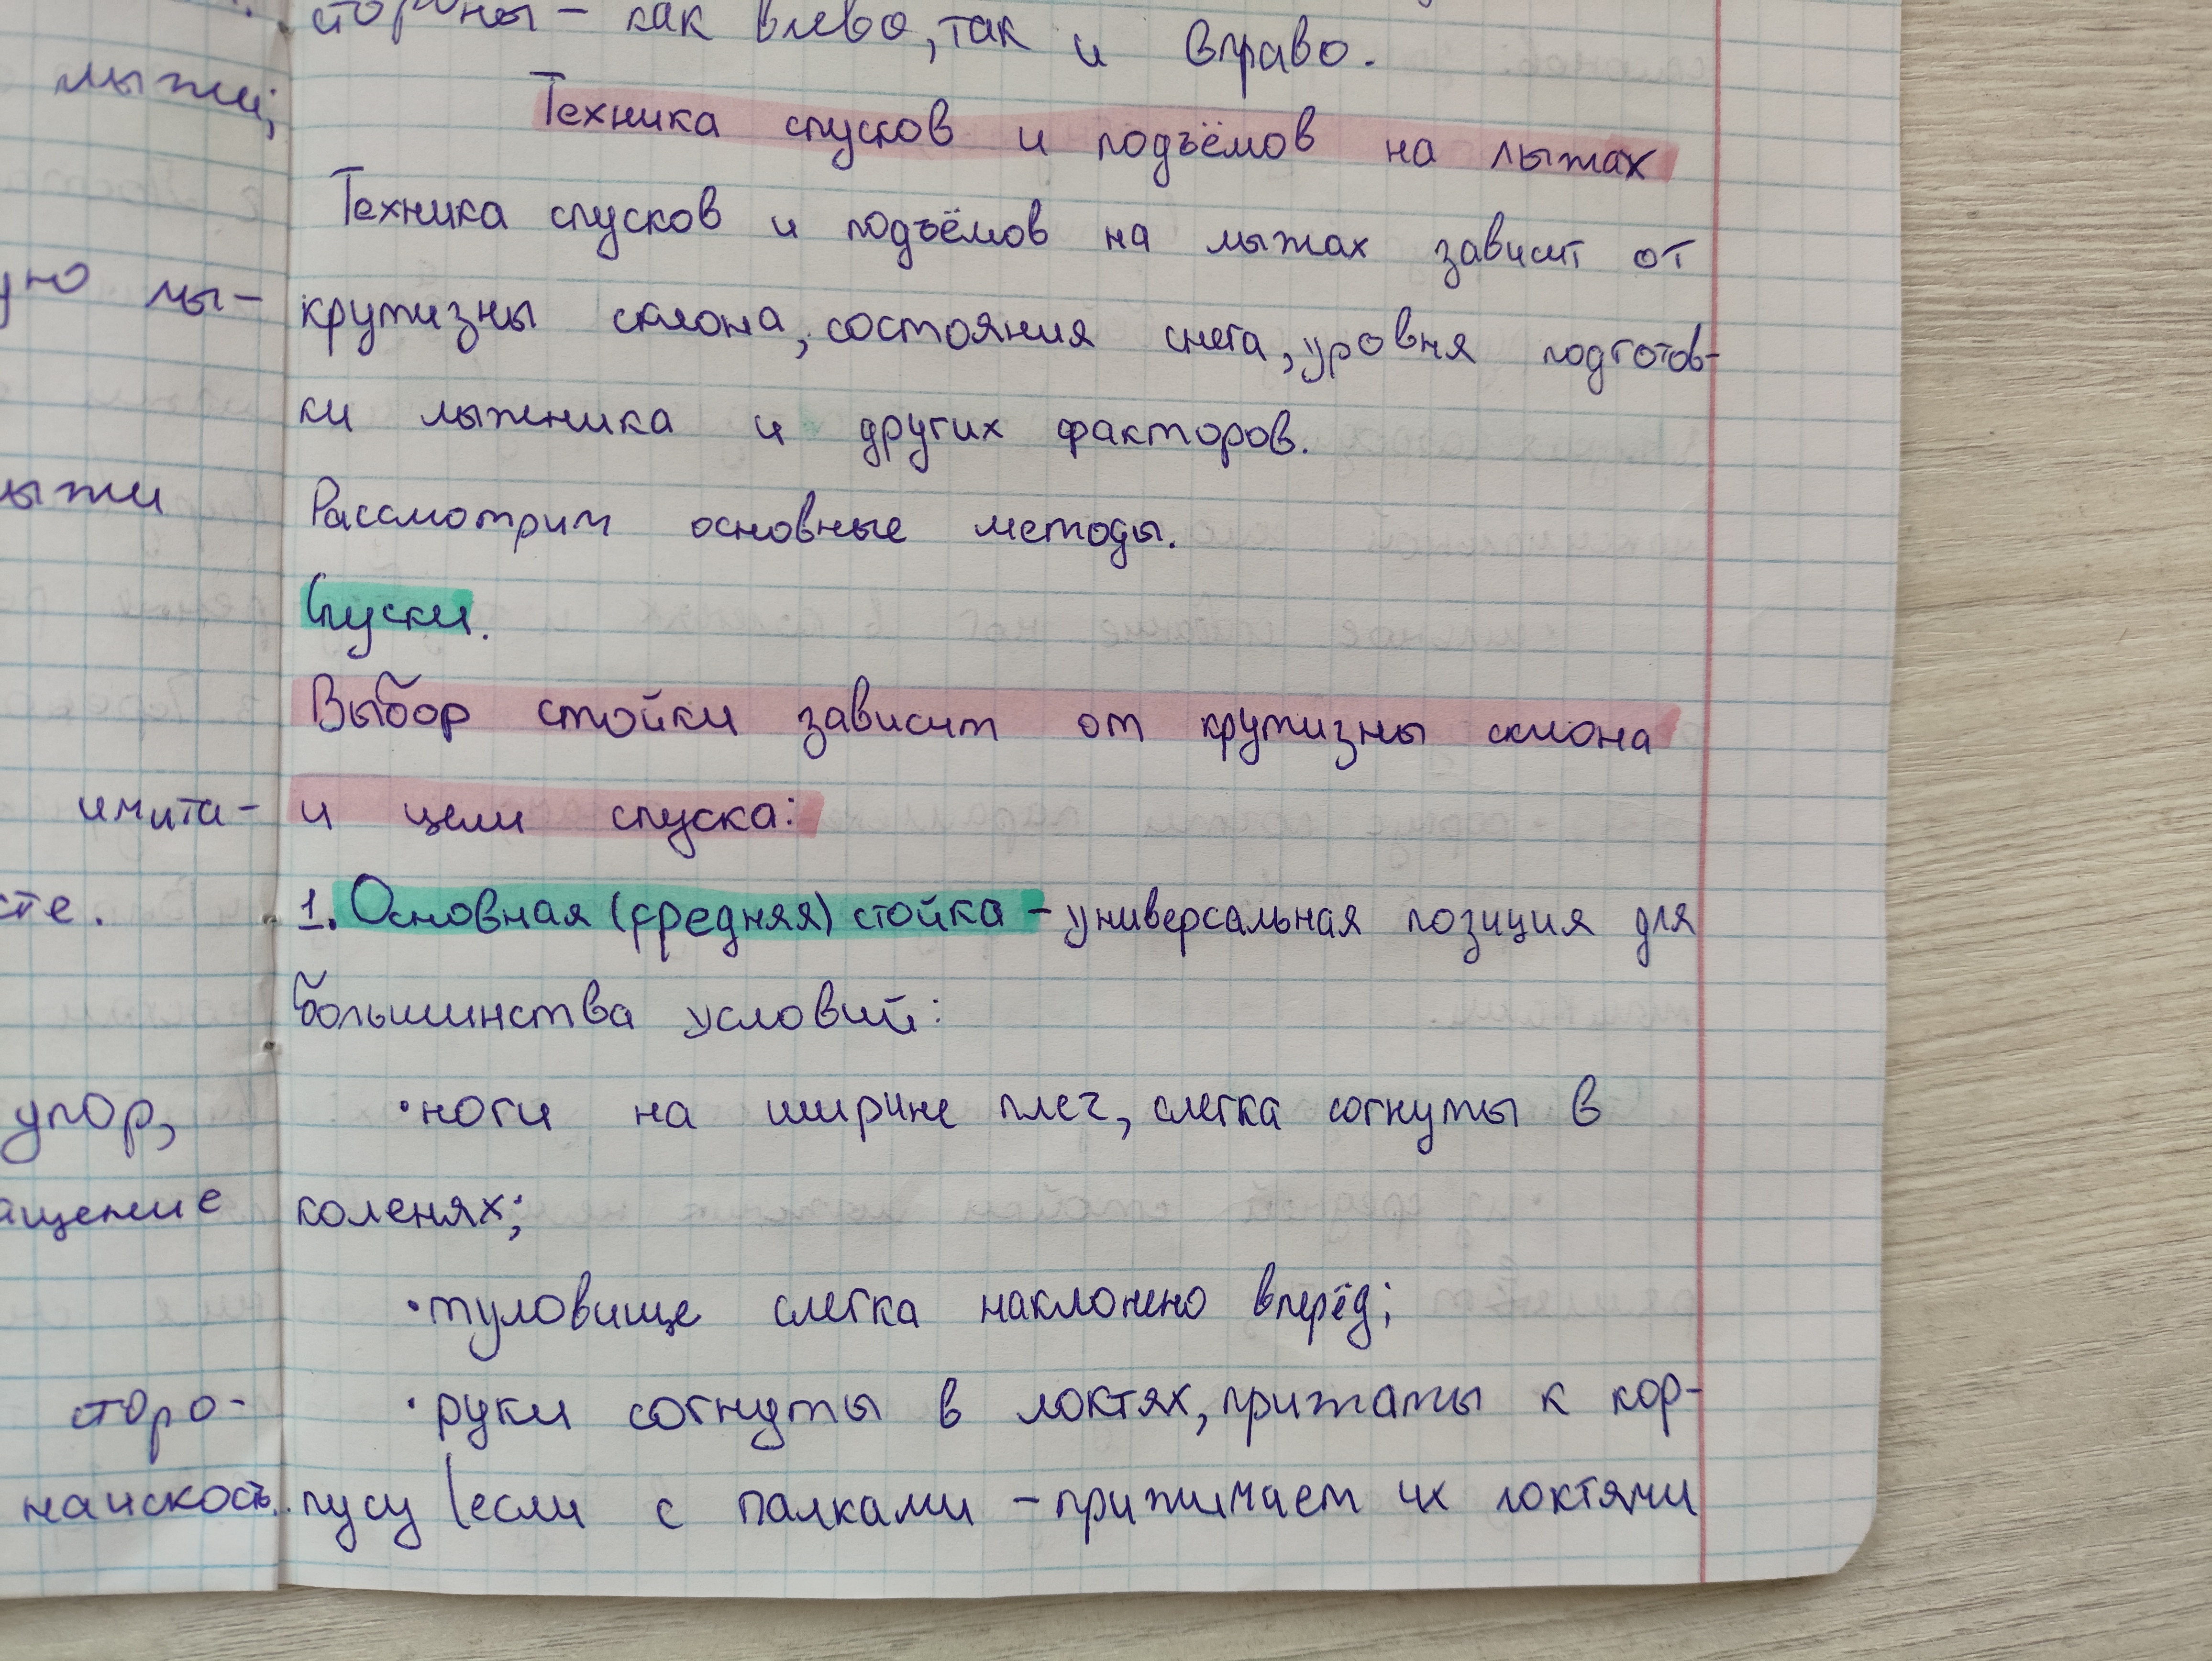 стороны - как влево, так и вправо.
Техника спусков и подъёмов на лыжах
Техника спусков и подъёмов на лыжах зависит от
крутизны склона, состояния снега, уровня подготов-
ки лыжника и других факторов.
Рассмотрим основные методы.
Спуски.
Выбор стойки зависит от крутизны склона
и цели спуска:
1. Основная (средняя) стойка - универсальная позиция для
большинства условий:
• ноги на ширине плеч, слегка согнуты в
коленях;
• туловище слегка наклонено вперёд;
• руки согнуты в локтях, прижаты к кор-
пусу (если с палками - прижимаем их локтями
лыжи;
ую лы-
ыжи
имита-
сте.
упор,
ащение
сторо-
наискось.